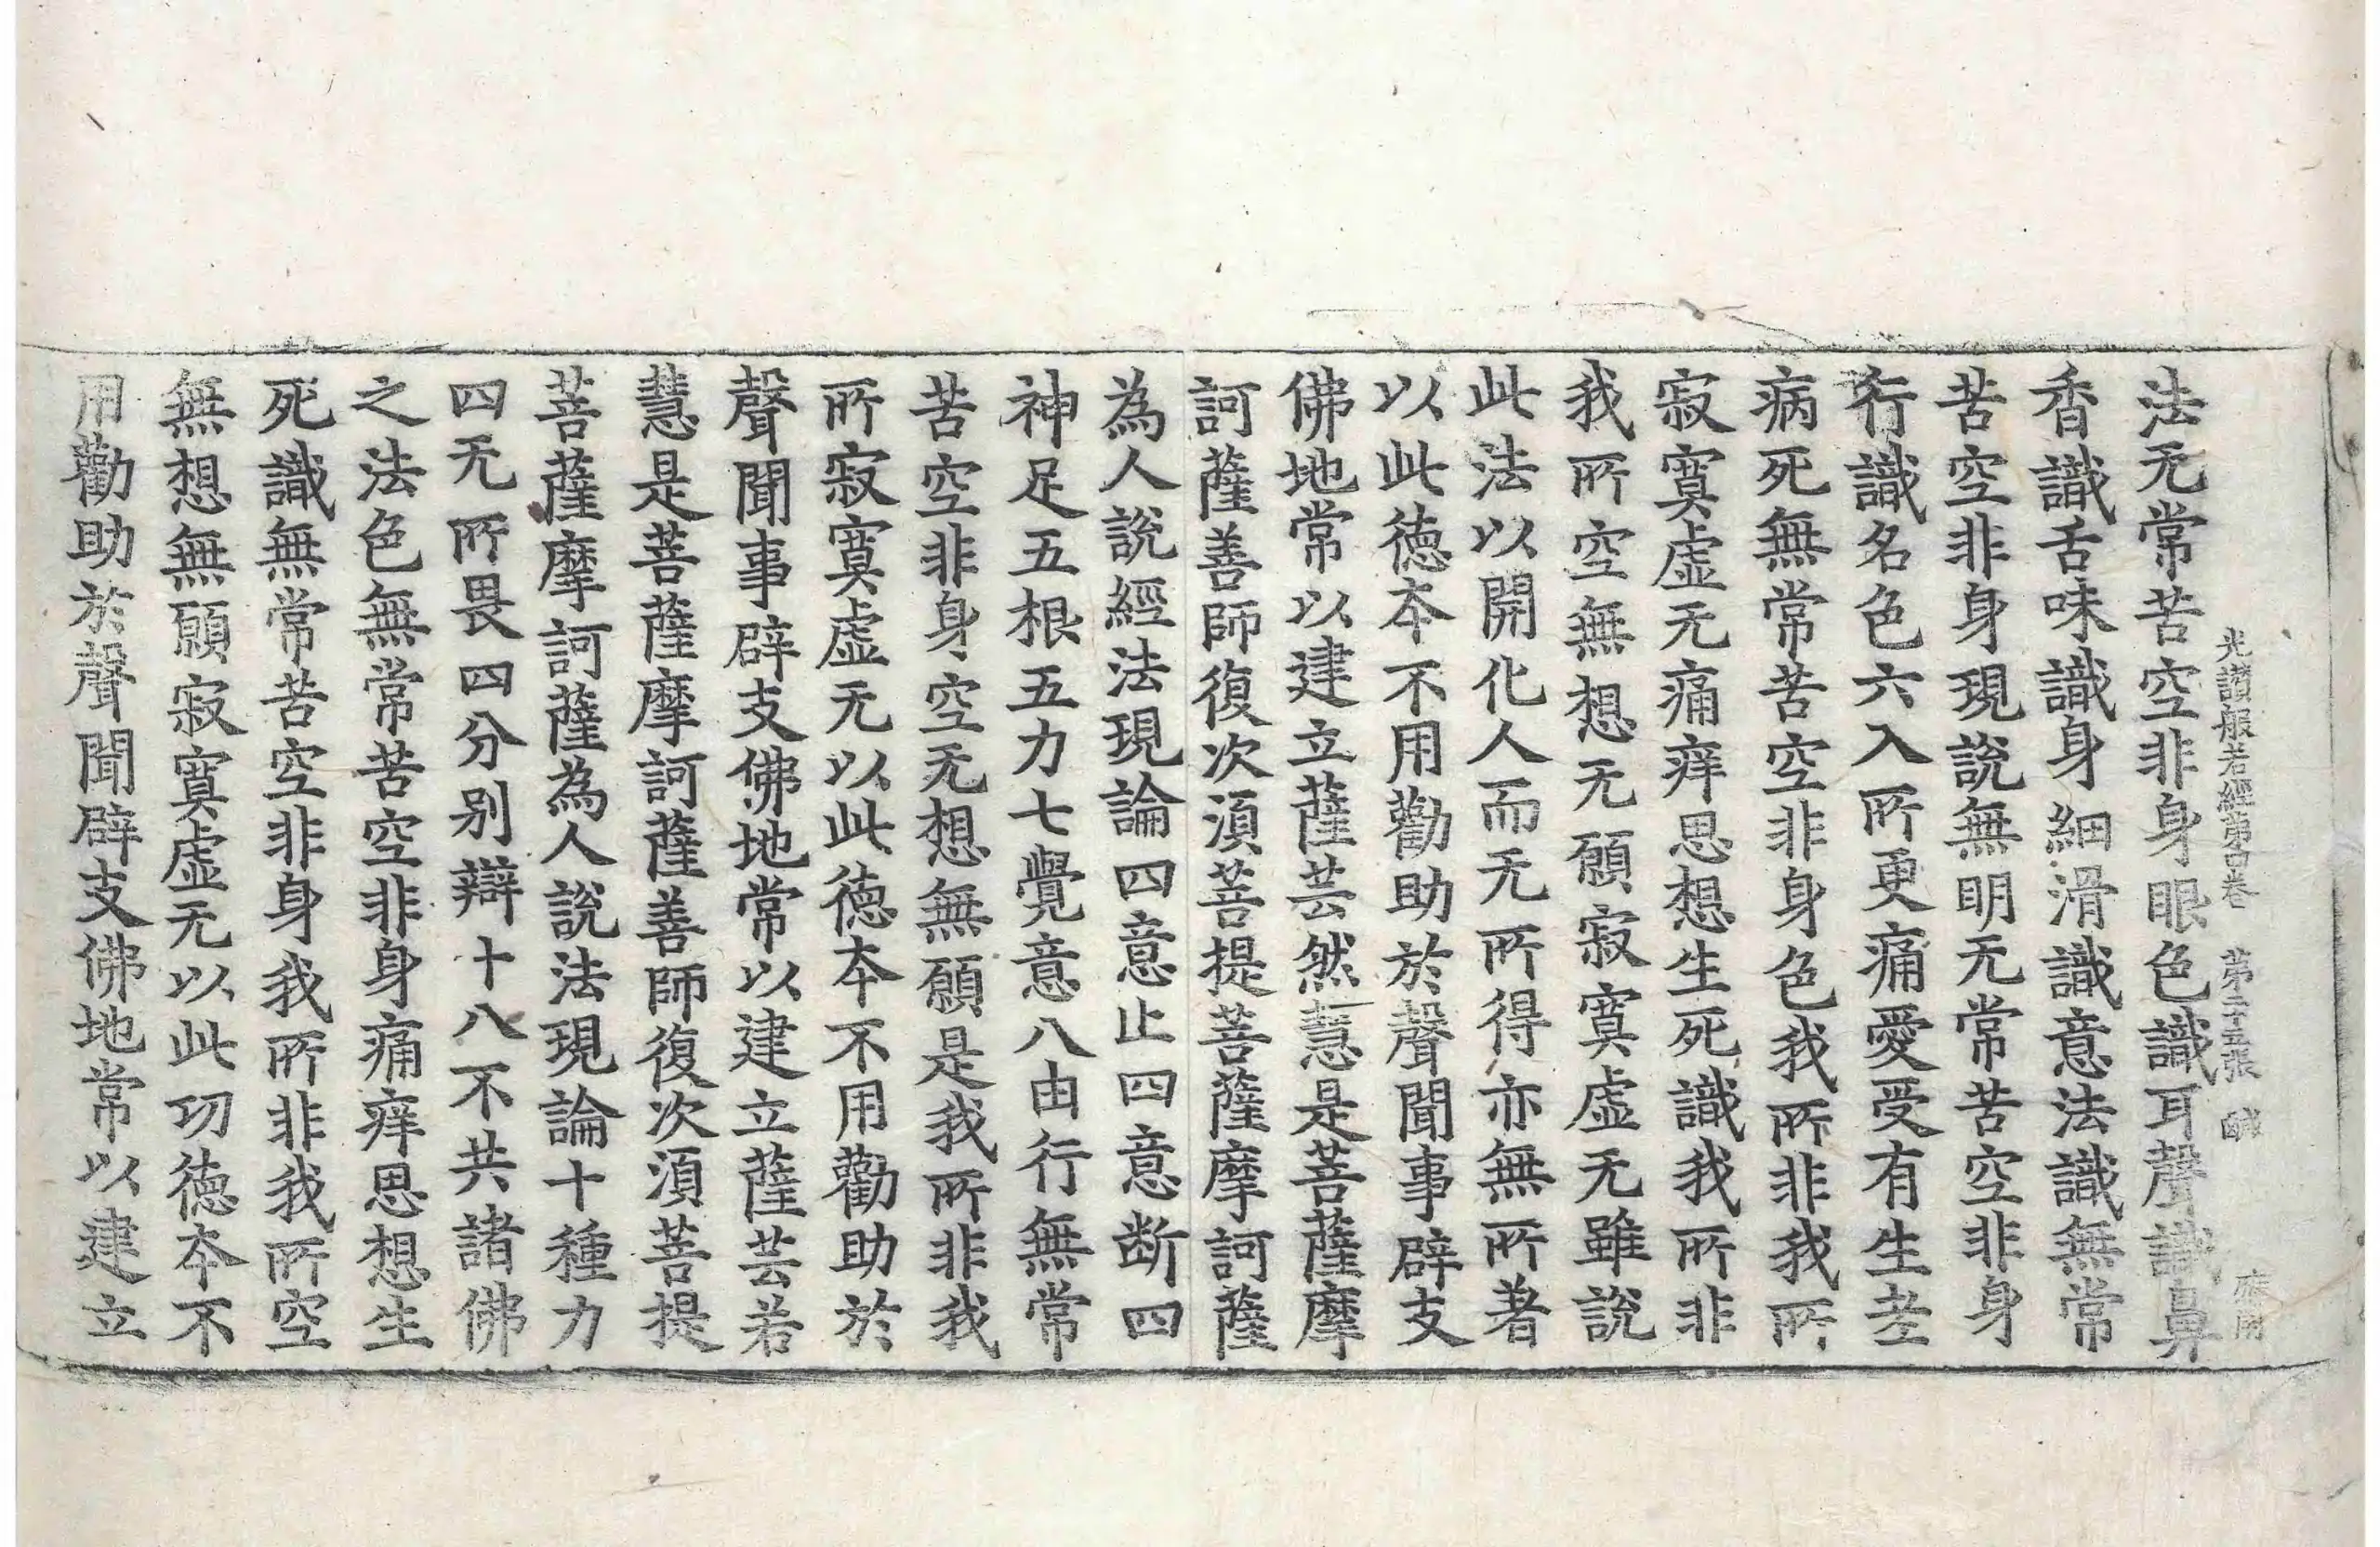 光讃般若經第四卷 第二十五張 鹹
法无常苦空非身眼色識耳聲識鼻
香識舌味識身細滑識意法識無常
苦空非身現說無明无常苦空非身
行識名色六入所更痛愛受有生老
病死無常苦空非身色我所非我所
寂寞虛无痛痒思想生死識我所非
我所空無想无願寂寞虛无雖說
此法以開化人而无所得亦無所著
以此德本不用勸助於聲聞事辟支
佛地常以建立薩芸然慧是菩薩摩
訶薩善師復次須菩提菩薩摩訶薩
為人說經法現論四意止四意断四
神足五根五力七覺意八由行無常
苦空非身空无想無願是我所非我
所寂寞虛无以此德本不用勸助於
聲聞事辟支佛地常以建立薩芸若
慧是菩薩摩訶薩善師復次須菩提
菩薩摩訶薩為人說法現論十種力
四无所畏四分別辯十八不共諸佛
之法色無常苦空非身痛痒思想生
死識無常苦空非身我所非我所空
無想無願寂寞虛无以此功德本不
用勸助於聲聞辟支佛地常以建立